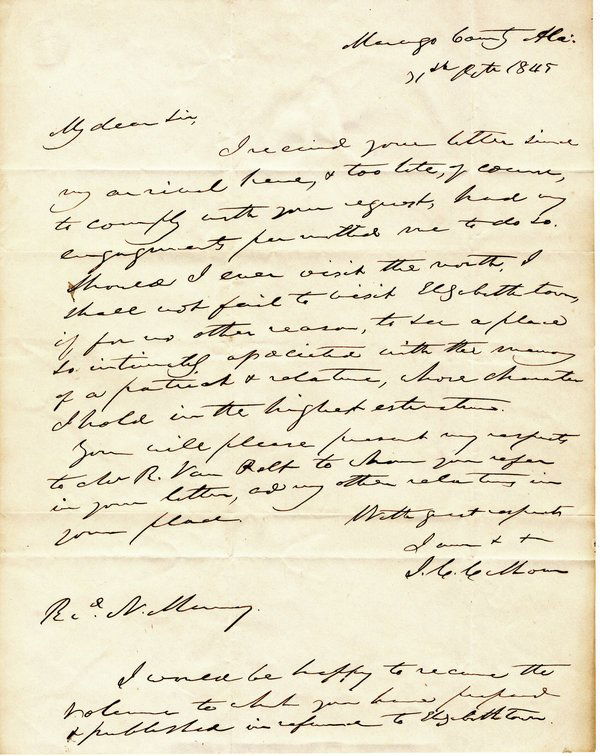 Marengo County Ala:
1845
My dear Sir,
I received your letter since
my arrival here, & too late, of course,
to comply with your request, had my
engagements permitted me to do so.
Should I ever visit the north, I
shall not fail to visit Elizabeth town,
if for no other reason, to see a place
so intimately associated with the memory
of a patriot & relative, whose character
I hold in the highest estimation.
You will please present my respects
to R. Van Pelt to whom you refer
in your letter, & my other relatives in
your place.
With great respect
I am & &
J. C. Calhoun
Revd. N. Murray.
I would be happy to receive the
Volume to which you have prepared
& published in reference to Elizabeth town.